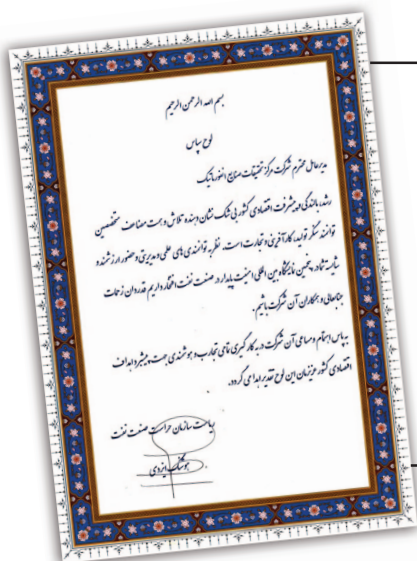 بسم الله الرحمن الرحیم
لوح سپاس
مدیرعامل محترم شرکت مرکز تحقیقات صنایع انفورماتیک
رشد، بالندگی و پیشرفت اقتصادی کشور بی شک نشان دهنده تلاش و همت مضاعف متخصصین
توانمند سنگر تولید، کارآفرینی و تجارت است. نظر به توانمندی های علمی و مدیریتی و حضور ارزشمند و
شایسته شما در پنجمین نمایشگاه بین المللی امنیت پایدار در صنعت نفت افتخار داریم قدردان زحمات
جنابعالی و همکاران آن شرکت باشیم.
به پاس اهتمام و مساعی آن شرکت در به کارگیری تمامی تجارب و هوشمندی جهت پیشبرد اهداف
اقتصادی کشور عزیزمان این لوح تقدیر اهدا می گردد.
ریاست سازمان حراست صنعت نفت
هوشنگ ایزدی